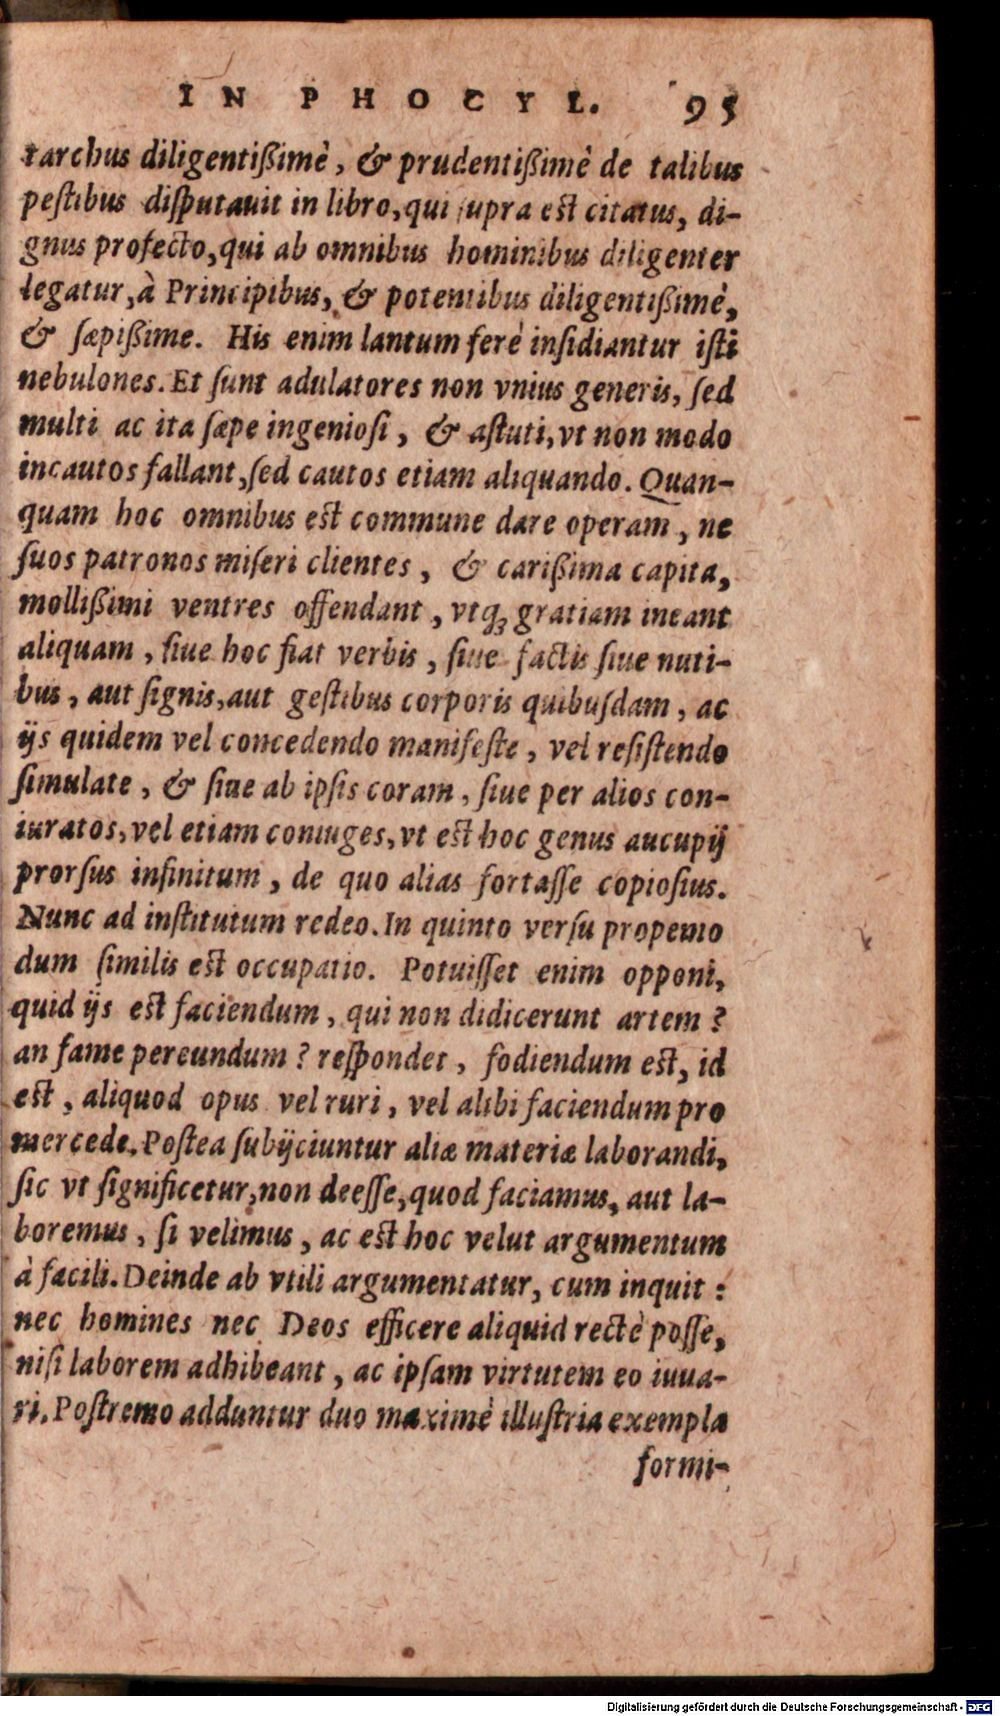 IN PHOCYL. 95
tarchus diligentißimè, & prudentißimè de talibus
peſtibus diſputauit in libro, qui ſupra eſt citatus, di-
gnus profecto, qui ab omnibus hominibus diligenter
legatur, à Principibus, & potentibus diligentißimè,
& ſæpißime. His enim lantum ferè inſidiantur iſti
nebulones. Et ſunt adulatores non vnius generis, ſed
multi ac ita ſæpe ingenioſi, & aſtuti, vt non modo
incautos fallant, ſed cautos etiam aliquando. Quan-
quam hoc omnibus eſt commune dare operam, ne
ſuos patronos miſeri clientes, & carißima capita,
mollißimi ventres offendant, vtq; gratiam ineant
aliquam, ſiue hoc fiat verbis, ſiue factis ſiue nuti-
bus, aut ſignis, aut geſtibus corporis quibuſdam, ac
ijs quidem vel concedendo manifeſte, vel reſiſtendo
ſimulate, & ſiue ab ipſis coram, ſiue per alios con-
iuratos, vel etiam coniuges, vt eſt hoc genus aucupij
prorſus infinitum, de quo alias fortaſſe copioſius.
Nunc ad inſtitutum redeo. In quinto verſu propemo
dum ſimilis eſt occupatio. Potuiſſet enim opponi,
quid ijs eſt faciendum, qui non didicerunt artem?
an fame pereundum? reſpondet, fodiendum eſt, id
eſt, aliquod opus vel ruri, vel alibi faciendum pro
mercede. Poſtea ſubijciuntur aliæ materiæ laborandi,
ſic vt ſignificetur, non deeſſe, quod faciamus, aut la-
boremus, ſi velimus, ac eſt hoc velut argumentum
à facili. Deinde ab vtili argumentatur, cum inquit:
nec homines nec Deos efficere aliquid rectè poſſe,
niſi laborem adhibeant, ac ipſam virtutem eo iuua-
ri. Poſtremo adduntur duo maximè illuſtria exempla
formi-
Digitalisierung gefördert durch die Deutsche Forschungsgemeinschaft - DFG